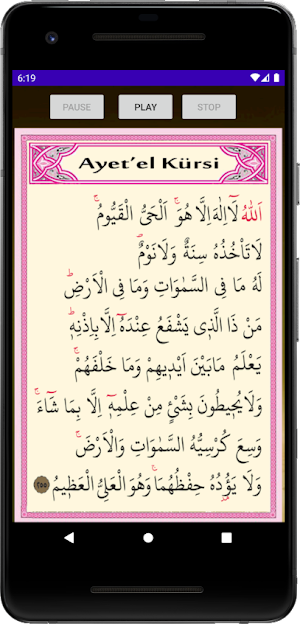 6:19
PAUSE PLAY STOP
Ayet’el Kürsi
اَللّٰهُ لَٓا اِلٰهَ اِلَّا هُوَۚ اَلْحَيُّ الْقَيُّومُۚ
لَا تَأْخُذُهُ سِنَةٌ وَلَا نَوْمٌۜ
لَهُ مَا فِى السَّمٰوَاتِ وَمَا فِى الْاَرْضِۜ
مَنْ ذَا الَّذٖى يَشْفَعُ عِنْدَهُٓ اِلَّا بِاِذْنِهٖۜ
يَعْلَمُ مَا بَيْنَ اَيْدٖيهِمْ وَمَا خَلْفَهُمْۚ
وَلَا يُحٖيطُونَ بِشَىْءٍ مِنْ عِلْمِهٖٓ اِلَّا بِمَا شَٓاءَۚ
وَسِعَ كُرْسِيُّهُ السَّمٰوَاتِ وَالْاَرْضَۚ
وَلَا يَؤُدُهُ حِفْظُهُمَاۚ وَهُوَ الْعَلِىُّ الْعَظٖيمُ ٢٥٥